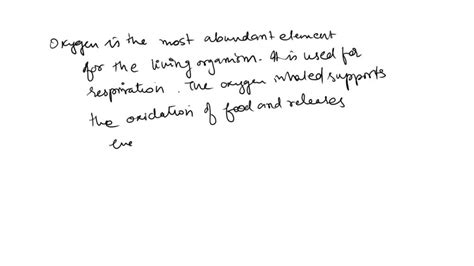 Oxygen is the most abundant element
for the living organism. It is used for
respiration. The oxygen inhaled supports
the oxidation of food and releases
ene